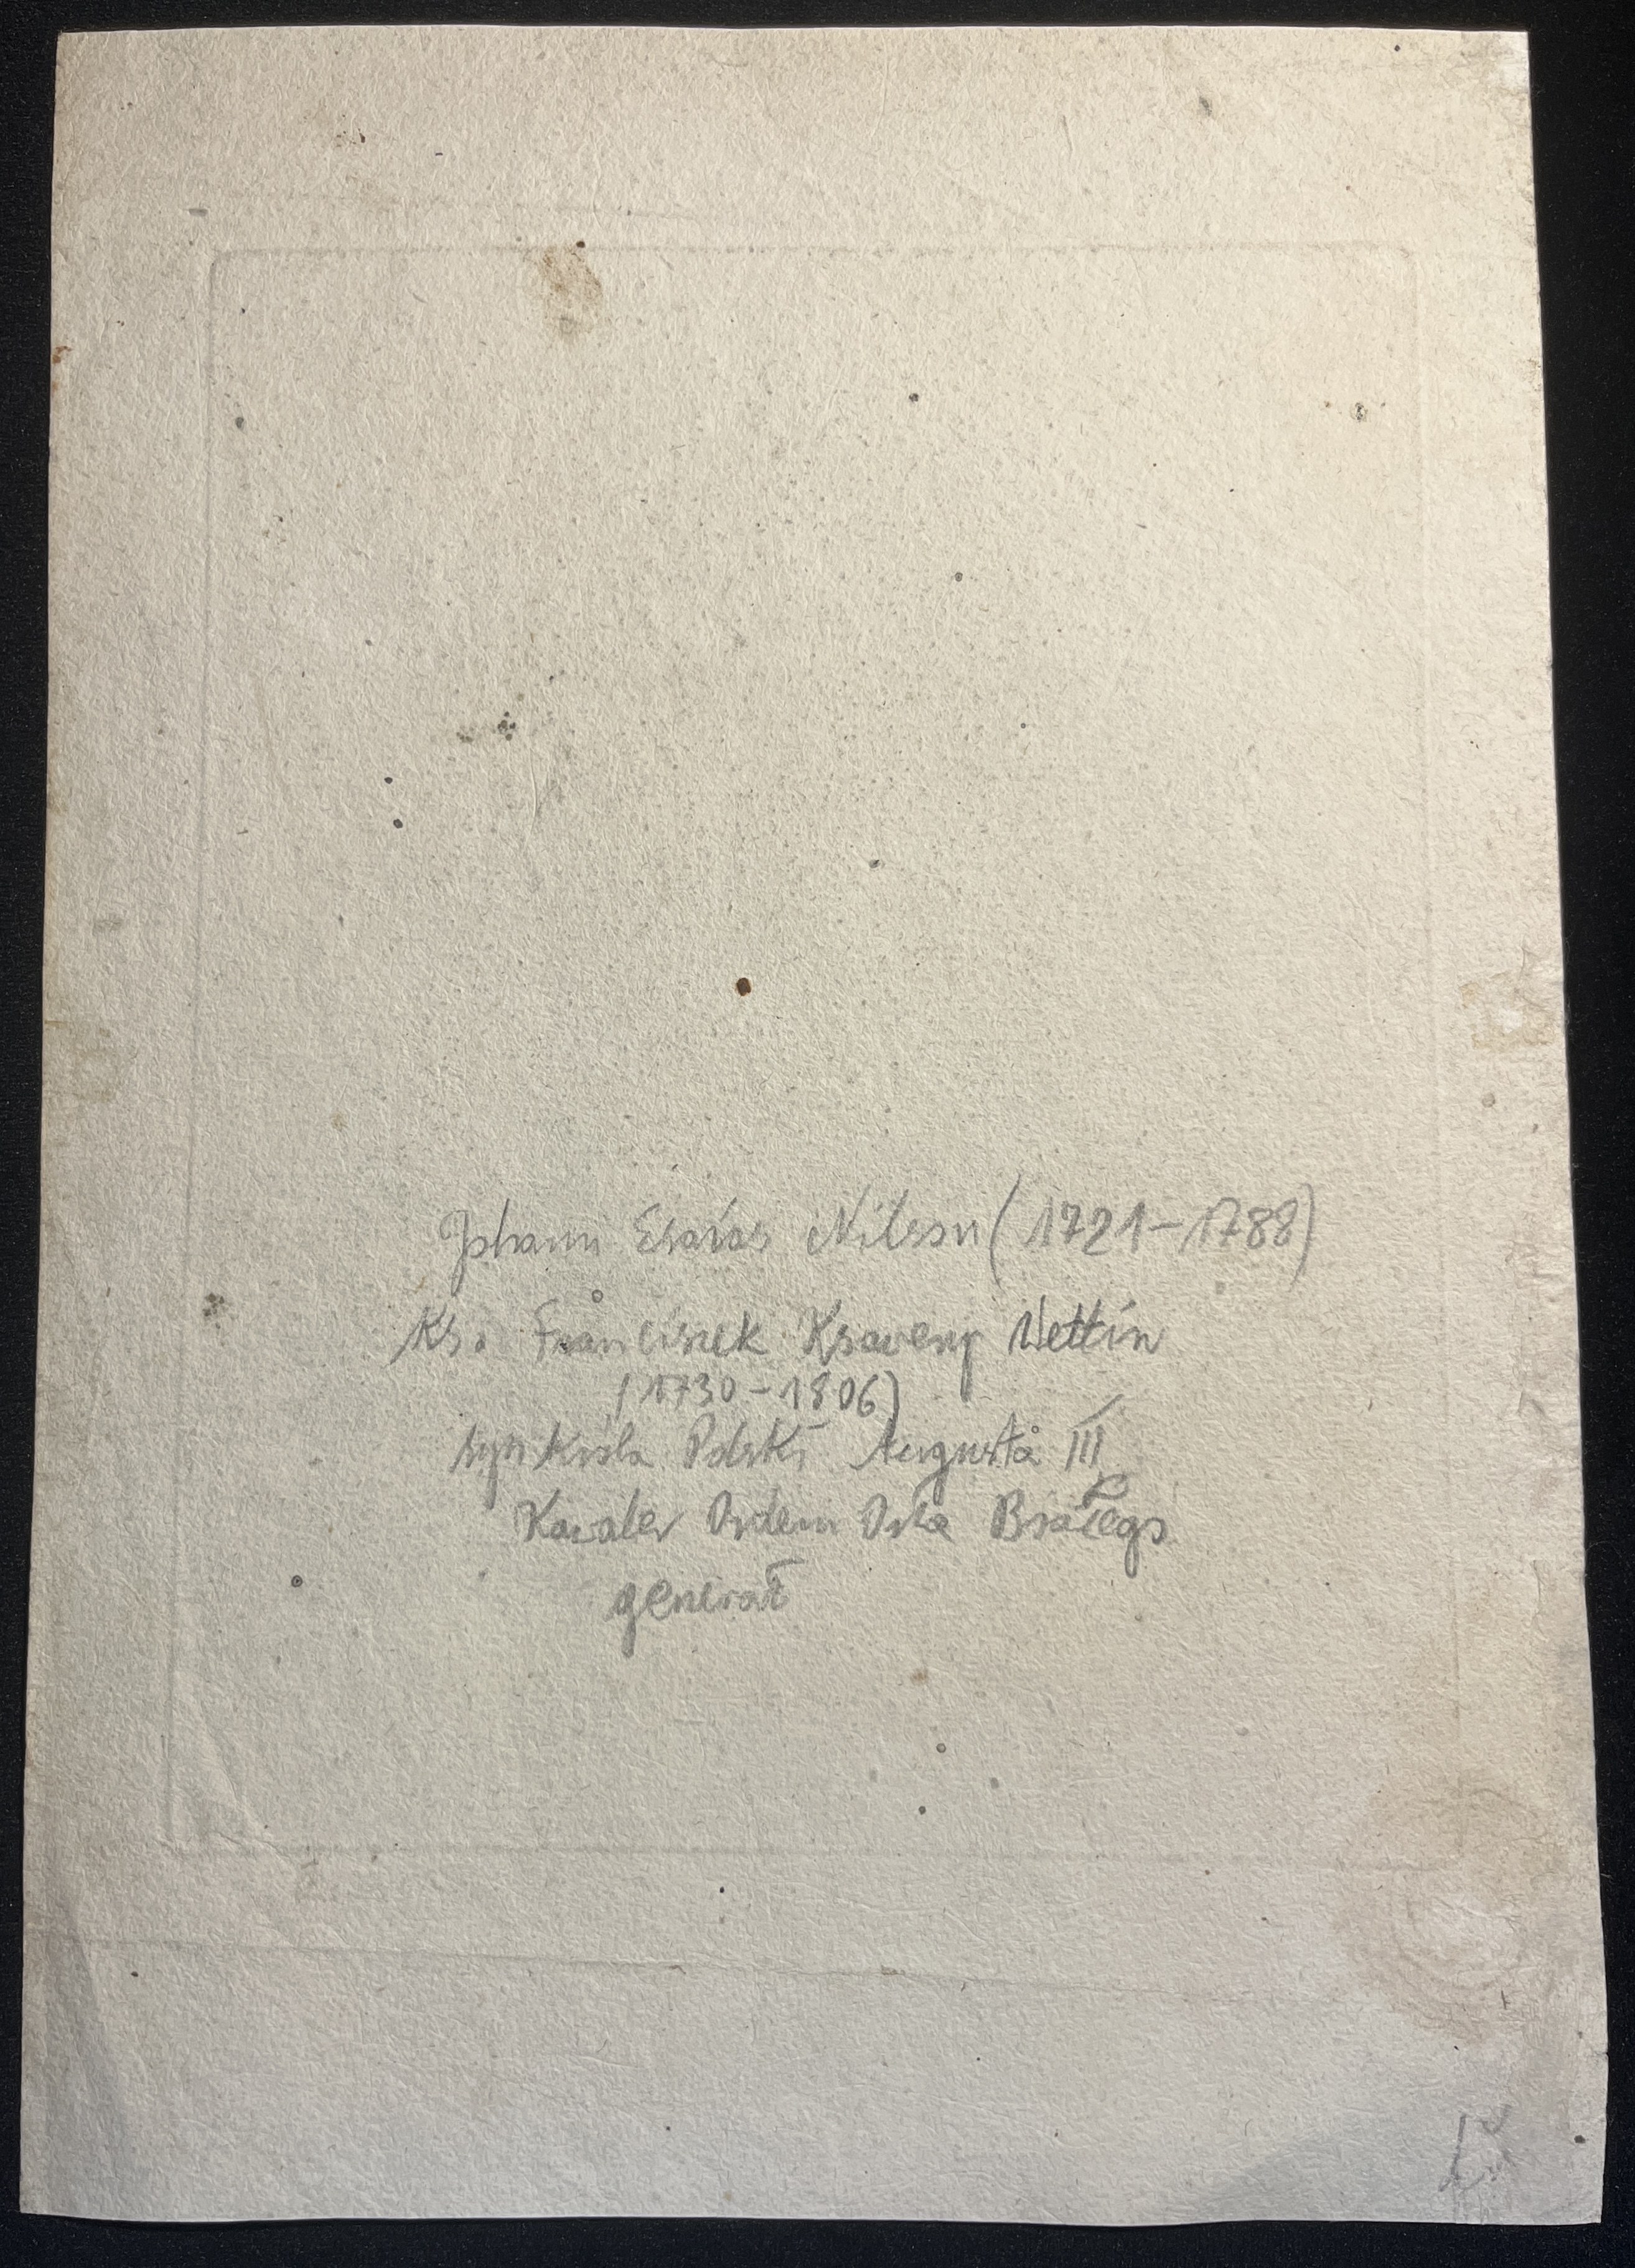 Johann Esaias Nilson (1721-1788)
Ks. Franciszek Ksawery Wettin
(1730-1806)
syn Króla Polski Augusta III
Kawaler Orderu Orła Białego
generał